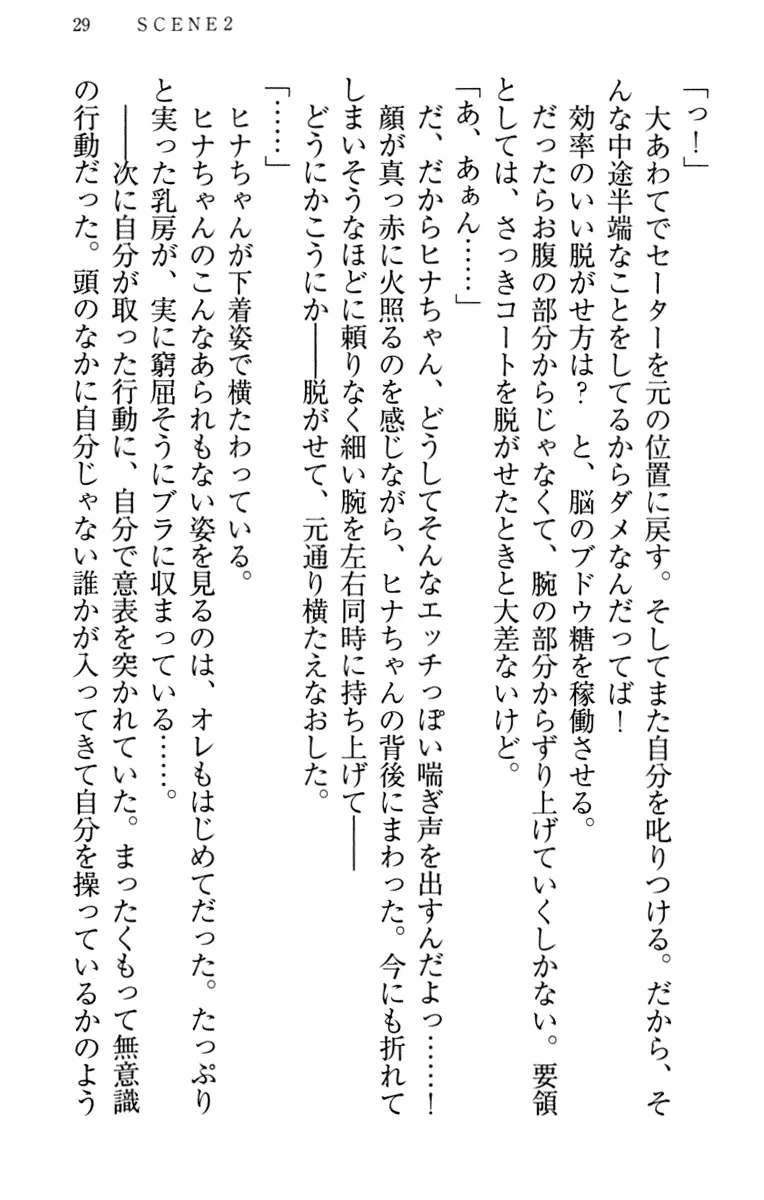 29　SCENE2
「っ！」
　大あわてでセーターを元の位置に戻す。そしてまた自分を叱りつける。だから、そ
んな中途半端なことをしてるからダメなんだってば！
　効率のいい脱がせ方は？　と、脳のブドウ糖を稼働させる。
　だったらお腹の部分からじゃなくて、腕の部分からずり上げていくしかない。要領
としては、さっきコートを脱がせたときと大差ないけど。
「あ、あぁん……」
　だ、だからヒナちゃん、どうしてそんなエッチっぽい喘ぎ声を出すんだよっ……！
　顔が真っ赤に火照るのを感じながら、ヒナちゃんの背後にまわった。今にも折れて
しまいそうなほどに頼りなく細い腕を左右同時に持ち上げて――
　どうにかこうにか――脱がせて、元通り横たえなおした。
「……」
　ヒナちゃんが下着姿で横たわっている。
　ヒナちゃんのこんなあられもない姿を見るのは、オレもはじめてだった。たっぷり
と実った乳房が、実に窮屈そうにブラに収まっている……。
　――次に自分が取った行動に、自分で意表を突かれていた。まったくもって無意識
の行動だった。頭のなかに自分じゃない誰かが入ってきて自分を操っているかのよう